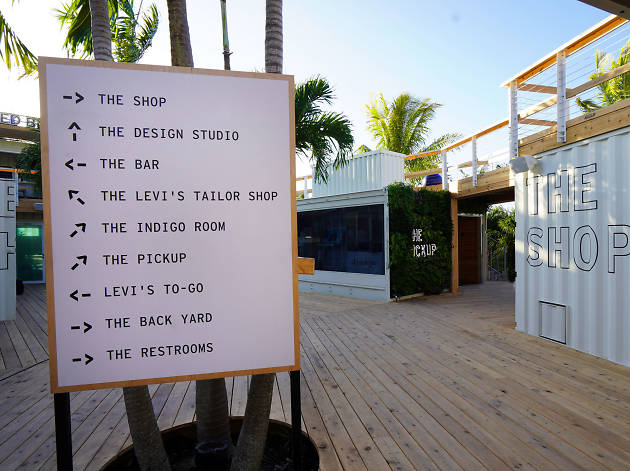 → THE SHOP
↑ THE DESIGN STUDIO
← THE BAR
↖ THE LEVI'S TAILOR SHOP
↗ THE INDIGO ROOM
↗ THE PICKUP
← LEVI'S TO-GO
→ THE BACK YARD
→ THE RESTROOMS
THE
SHOP